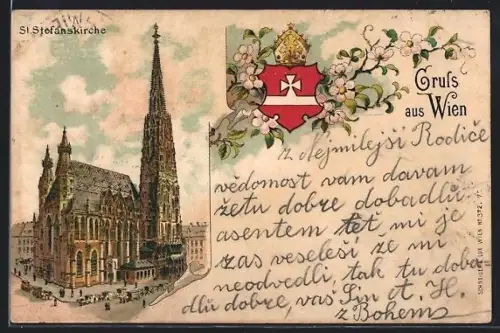 St. Stefanskirche
Gruß
aus Wien
z Nejmilejší Rodiče
vědomost vam davam
žetu dobre dobadlu
asentem teť mi je
zas veseleši že mi
neodvedli, tak tu doba
dlu dobre, vaš Sin A. H.
z Bohem